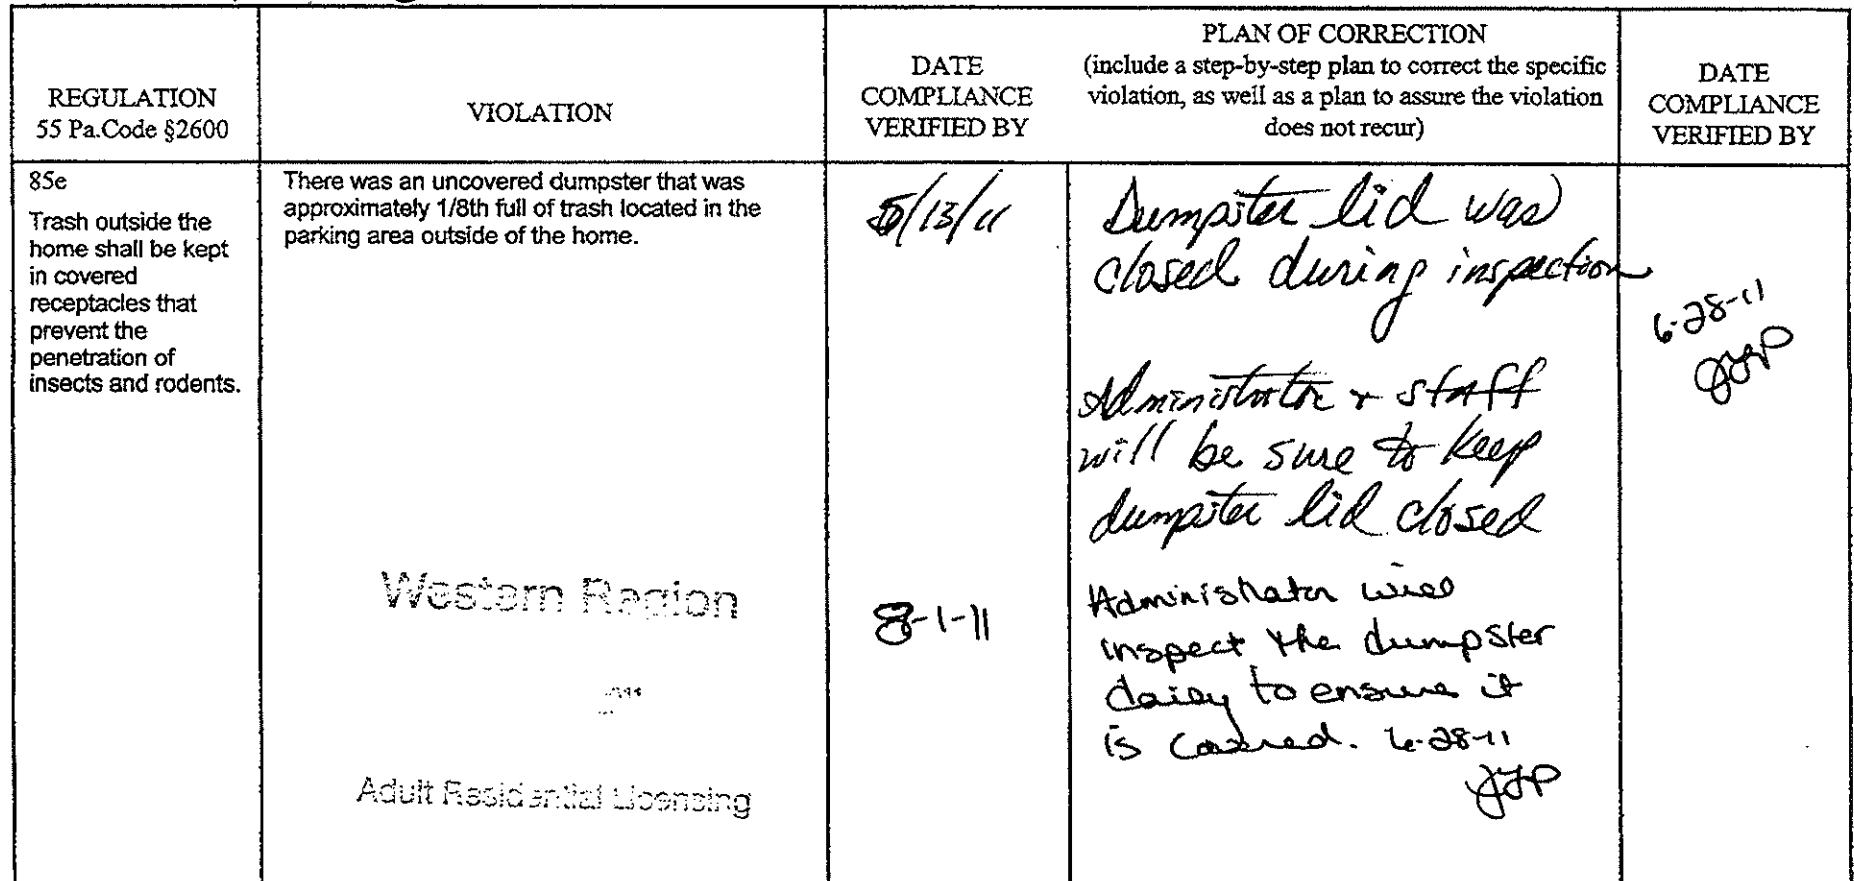 REGULATION
55 Pa.Code §2600
VIOLATION
DATE
COMPLIANCE
VERIFIED BY
PLAN OF CORRECTION
(include a step-by-step plan to correct the specific
violation, as well as a plan to assure the violation
does not recur)
DATE
COMPLIANCE
VERIFIED BY
85e
Trash outside the
home shall be kept
in covered
receptacles that
prevent the
penetration of
insects and rodents.
There was an uncovered dumpster that was
approximately 1/8th full of trash located in the
parking area outside of the home.
5/13/11
8-1-11
Dumpster lid was
closed during inspection
Administrator & staff
will be sure to keep
dumpster lid closed
Administrator will
inspect the dumpster
daily to ensure it
is covered. 6-28-11
6-28-11
Western Region
Adult Residential Licensing